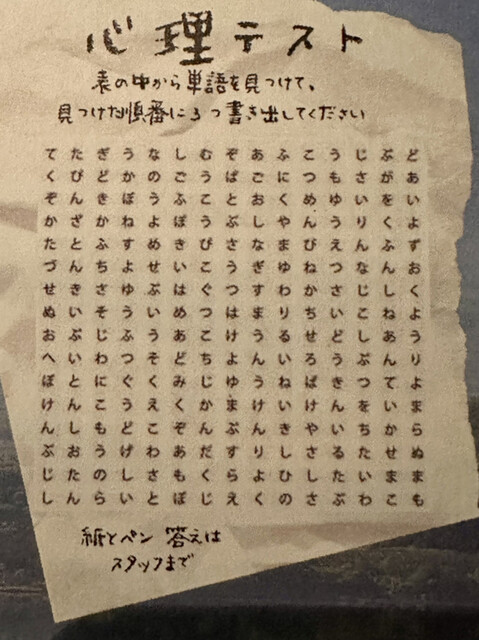 心理テスト
表の中から単語を見つけて、
見つけた順番に3つ書き出してください
どあいよずおくようりよまらぬまも
ぶがをくふんしねあんていかせまこ
じさいりんなじこしぶつをちたいわ
うもゆうえつさいどうきんいるたぶ
こつめんびねかちせろばけやさしさ
ふにくやまゆわりるいねいきしひの
あごおしなぎすまうんうけんりよく
ぞばとぶさうつはけよゆまぶすらえ
むうこうびこぐつこちじかんだくじ
しごふぼきいはめあどみくぞあもぼ
なのうよめせぶいうそくえこわさと
うかぼねすよゆうふつぐうどげしい
ぎどきかふちさそじわにこもうのら
たびんざとんきいぶいとんしおたん
てくぞかたづせぬおへぼけんぶじし
紙とペン 答えは
スタッフまで